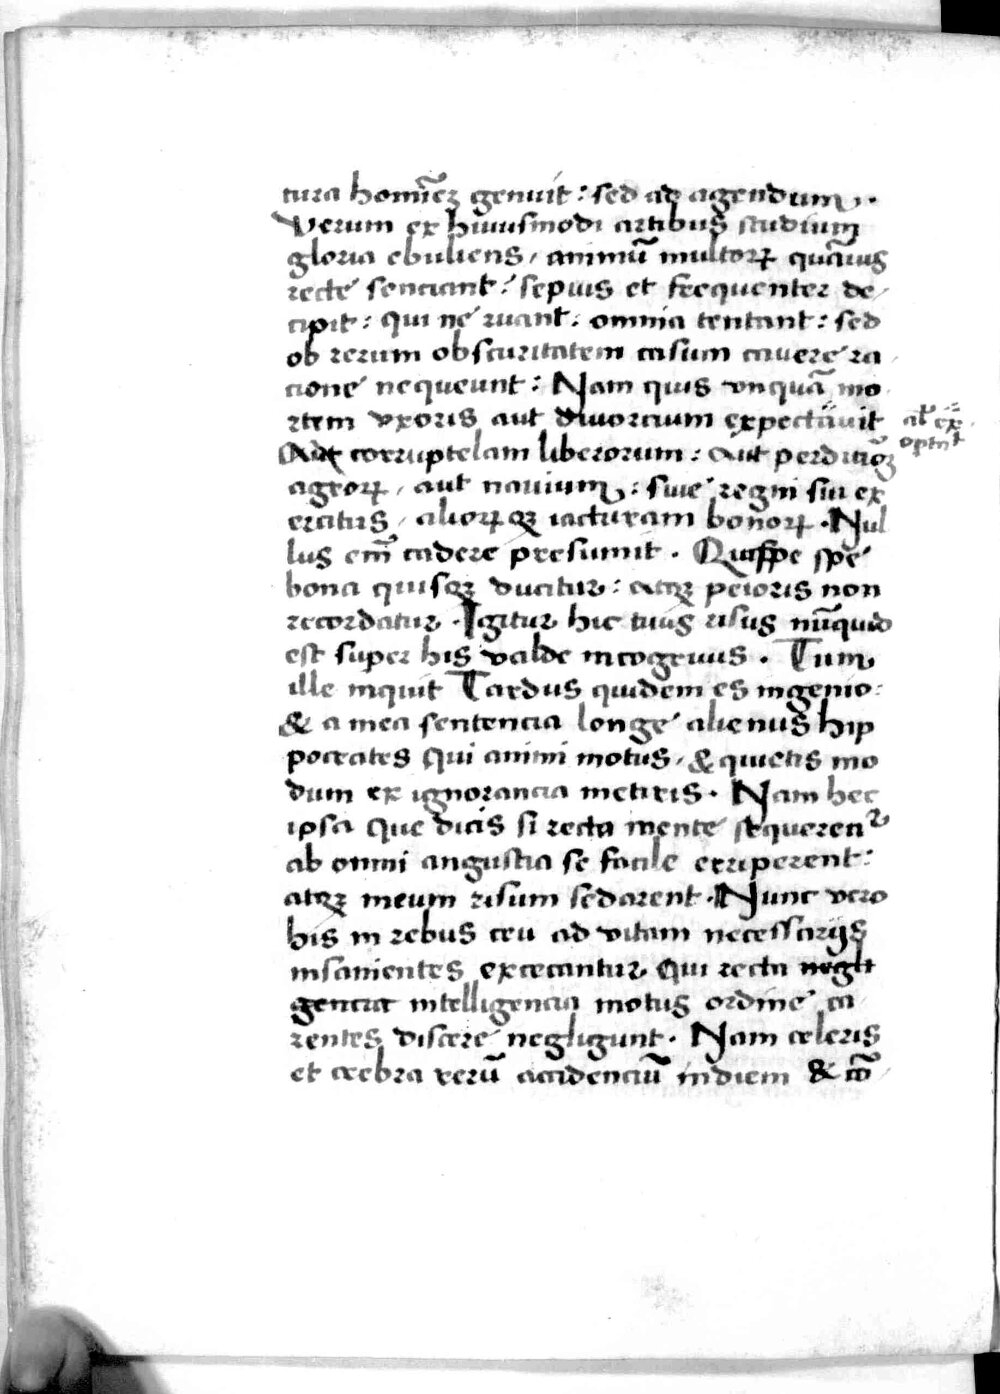 tura homīeꝫ genuit: sed ad agendum.
Verum ex huiusmodi artibus studium
gloria ebuliens, animū multoꝝ quāuis
recte senciant: sepius et frequenter de
cipit: qui ne ruant: omnia tentant: sed
ob rerum obscuritatem casum cauere ra
cione nequeunt: Nam quis vnquā mo
rtem vxoris aut diuorcium expectauit
al' ex
optat
Aut corruptelam liberorum: aut perdicioēꝫ
agroꝝ, aut nauium: siue regni siu ex
ercitus, alioꝝqꝫ iacturam bonoꝝ. Nul
lus em̄ cadere presumit. Quippe spe
bona quisqꝫ ducitur: atqꝫ peioris non
recordatur. Igitur hic tuus risus nūquid
est super his valde incogruus. Tum
ille inquit Tardus quidem es ingenio:
& a mea sentencia longe alienus hip
pocrates Qui animi motus, & quietis mo
dum ex ignorancia metiris. Nam hec
ipsa Que dicis si recta mente sequerenᷣ
ab omni angustia se facile eriperent:
atqꝫ meum risum sedarent. Nunc vero
his in rebus ceu ad vitam necessarijs
insanientes excecantur Qui recta negli
genciae intelligencia motus ordine ca
rentes discere negligunt. Nam celeris
et crebra rerū accidenciū indiem & cō